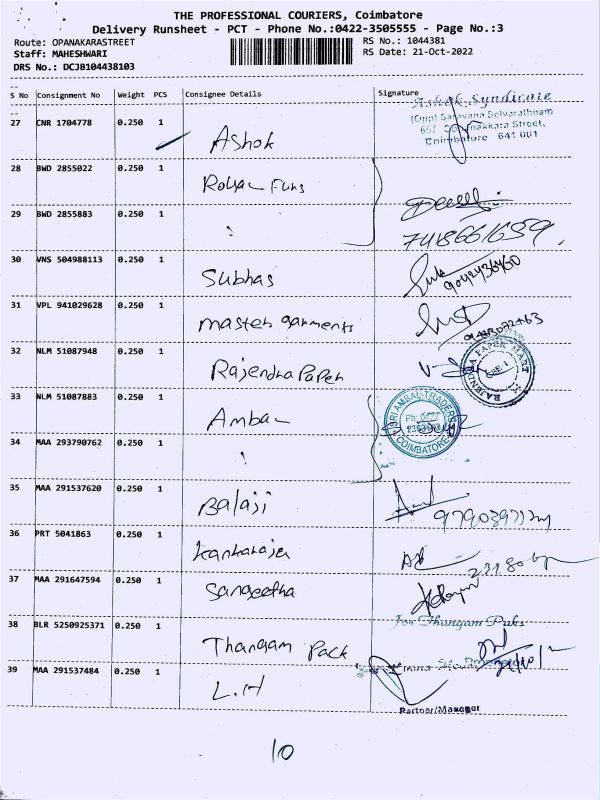 THE PROFESSIONAL COURIERS, Coimbatore
Delivery Runsheet - PCT - Phone No.:0422-3505555 - Page No.:3
Route: OPANAKARASTREET RS No.: 1044381
Staff: MAHESHWARI RS Date: 21-Oct-2022
DRS No.: DCJB104438103
S No Consignment No Weight PCS Consignee Details Signature
Ashok Syndicate
27 CNR 1704778 0.250 1 Ashok
(Opp) Saravana Selvarathnam
Street,
Coimbatore 641 001
28 BWD 2855022 0.250 1
29 BWD 2855883 0.250 1
7418661659
30 VNS 504988113 0.250 1 Subhas
31 VPL 941029628 0.250 1 Master Garments
32 NLM 51087948 0.250 1 Rajendra Paper
RAJENDRA PAPER MART
33 NLM 51087883 0.250 1 Ambal
SRI AMBAL TRADERS
Ph: 0422
COIMBATORE
34 MAA 293790762 0.250 1
35 MAA 291537620 0.250 1 Balaji
36 PRT 5041863 0.250 1
37 MAA 291647594 0.250 1 Sangeetha
For Thangam Paks
38 BLR 5250925371 0.250 1 Thangam Pack
39 MAA 291537484 0.250 1 L.H
Partner/Manager
10